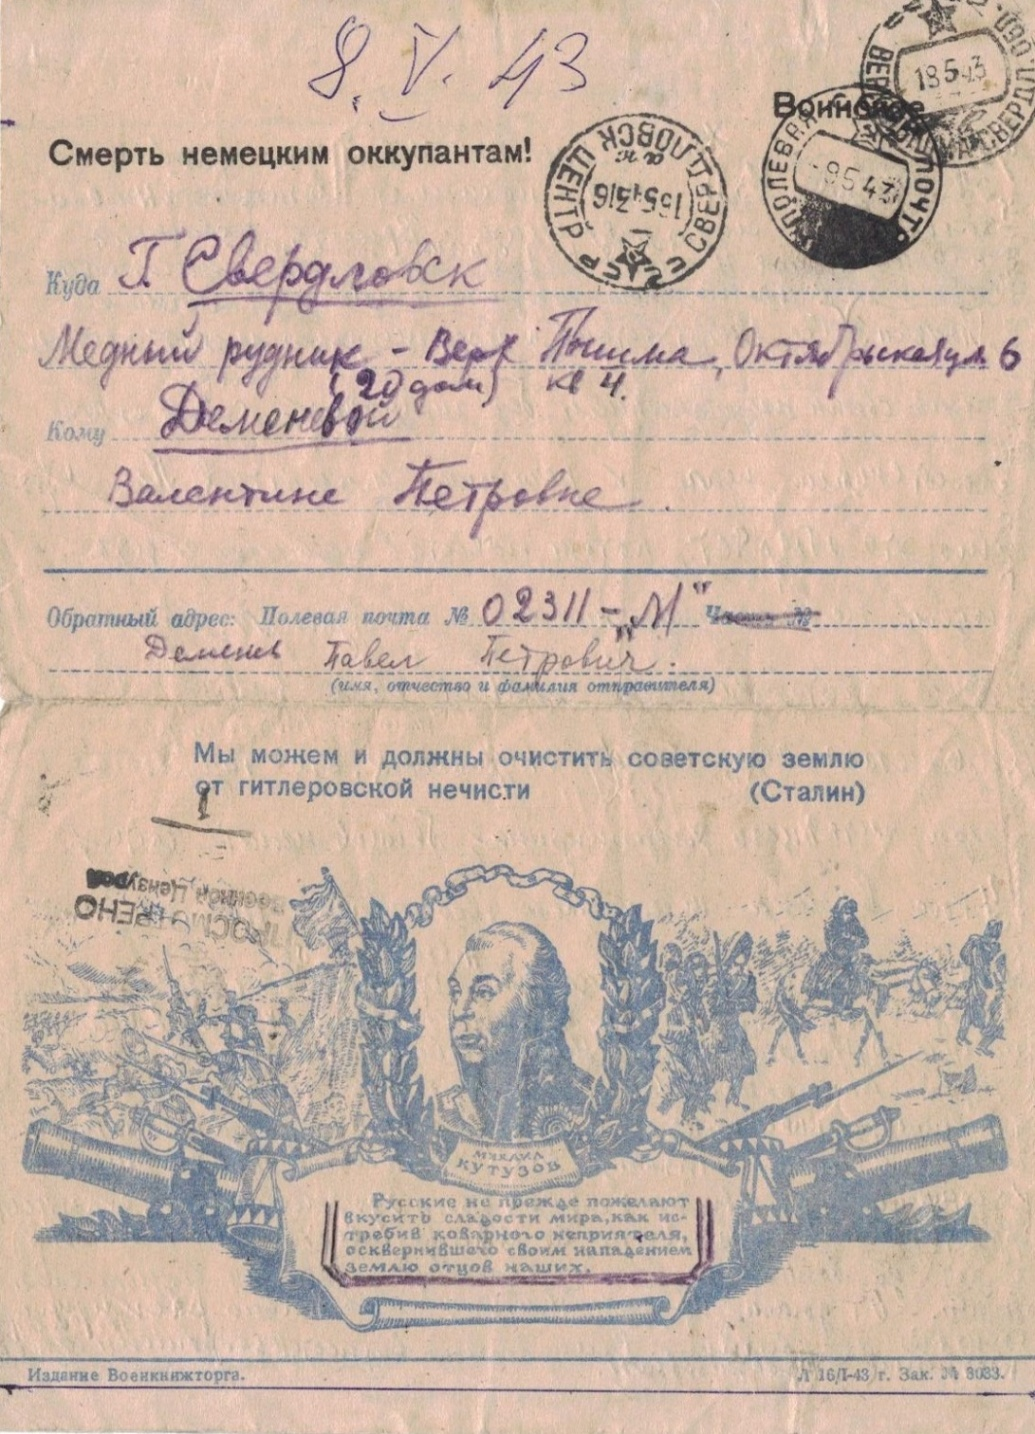 8. V. 43
Воинское
Смерть немецким оккупантам!
СВЕРДЛОВСК ЦЕНТР
ПОЛЕВАЯ ПОЧТ.
-9 5 43
18 5 43
Куда Г Свердловск
Медный рудник - Верх Пышма, Октябрьская ул 6
(20 дом) кв 4.
Кому Деменевой
Валентине Петровне
Обратный адрес: Полевая почта № 02311 - „М" Часть №
Деменев Павел Петрович.
(имя, отчество и фамилия отправителя)
Мы можем и должны очистить советскую землю
от гитлеровской нечисти (Сталин)
1
ПРОСМОТРЕНО
Военной Цензурой
МИХАИЛ
КУТУЗОВ
Русские не прежде пожелают
вкусить сладости мира, как ис-
требив коварного неприятеля,
осквернившего своим нападением
землю отцов наших.
Издание Военкнижторга.
Л 16/I-43 г. Зак. № 3033.